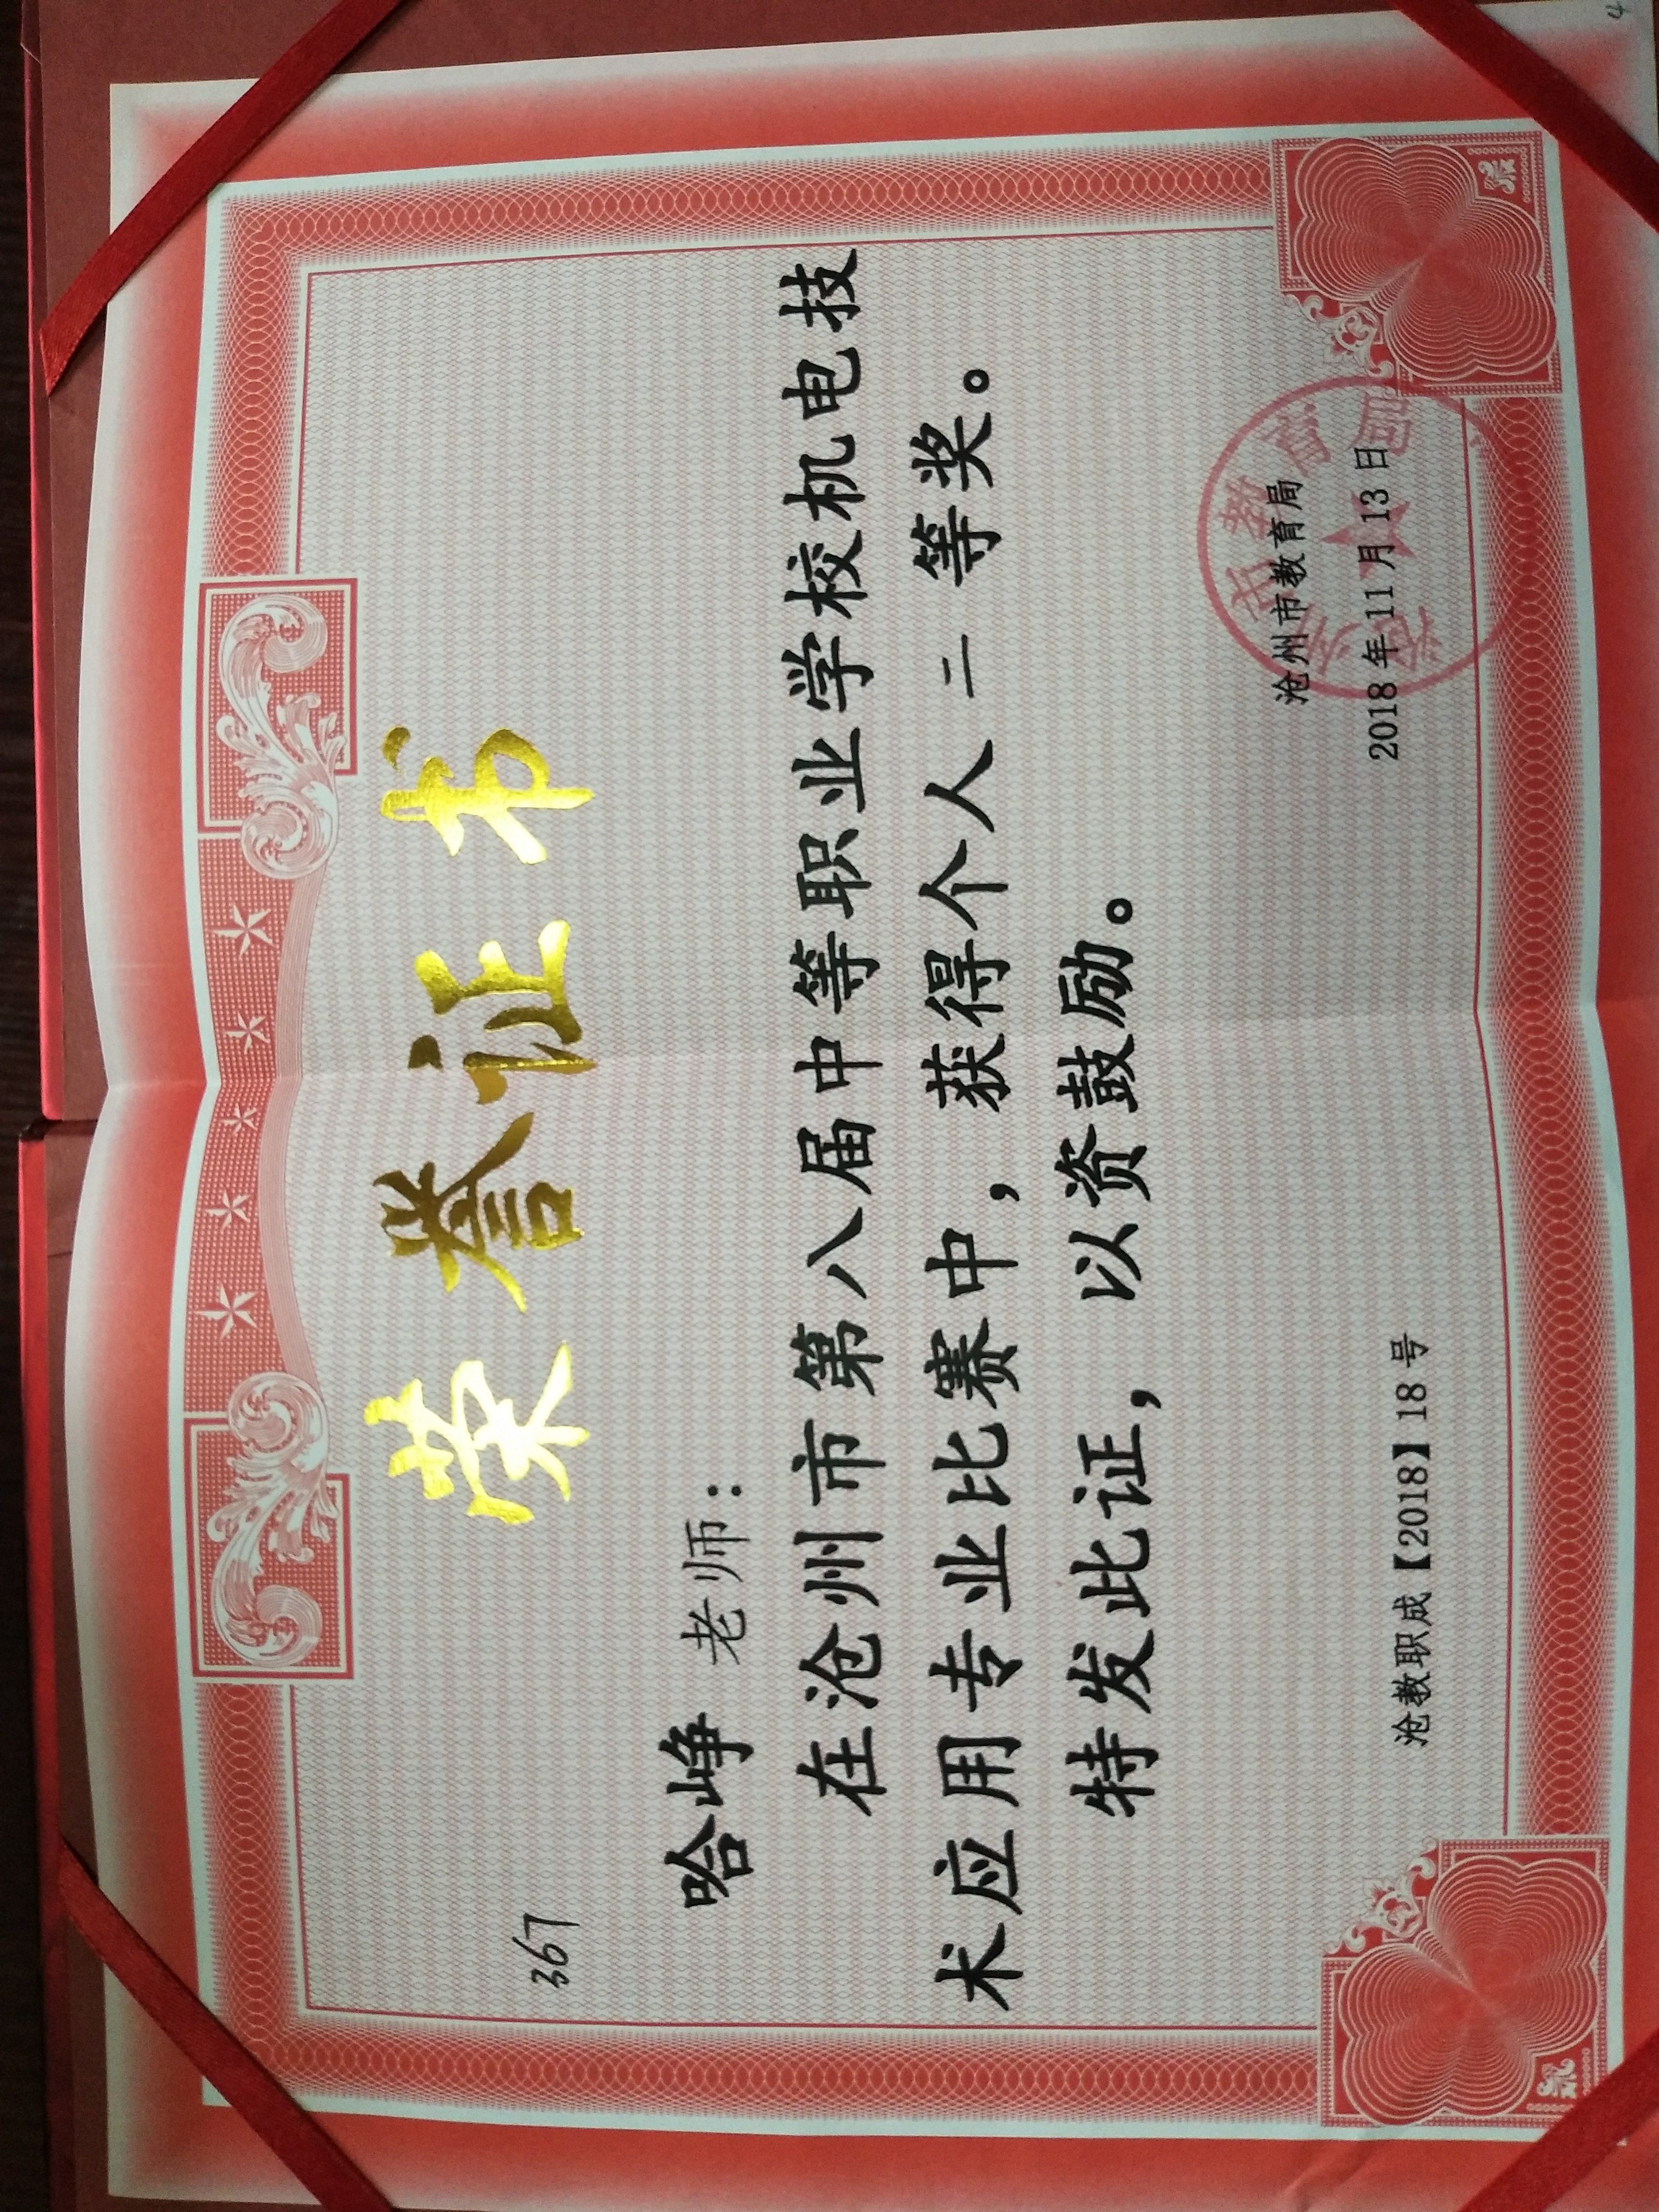 荣誉证书
367
哈峥 老师：
在沧州市第八届中等职业学校机电技
术应用专业比赛中，获得个人 二 等奖。
特发此证，以资鼓励。
沧州市教育局
沧教职成【2018】18号
2018年11月13日
沧州市教育局
4